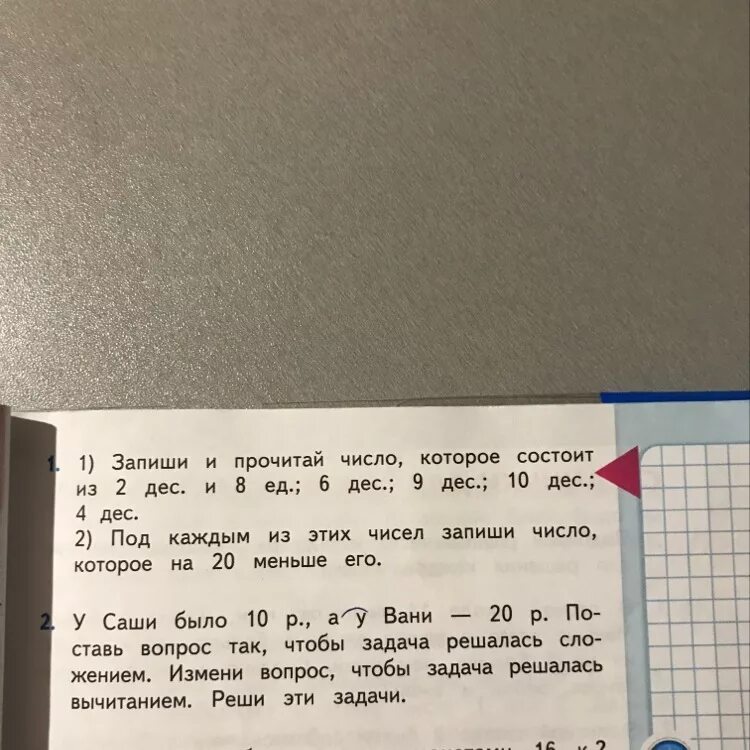 1. 1) Запиши и прочитай число, которое состоит
из 2 дес. и 8 ед.; 6 дес.; 9 дес.; 10 дес.;
4 дес.
2) Под каждым из этих чисел запиши число,
которое на 20 меньше его.
2. У Саши было 10 р., а у Вани — 20 р. По-
ставь вопрос так, чтобы задача решалась сло-
жением. Измени вопрос, чтобы задача решалась
вычитанием. Реши эти задачи.